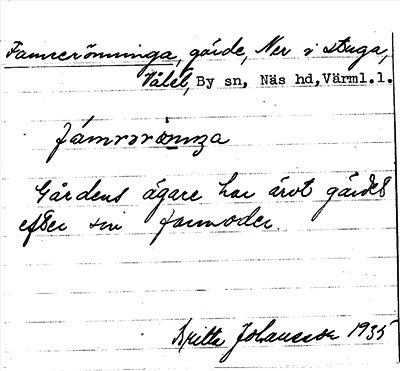 Famrerönninga, gärde, Ner i stuga,
Vålet, By sn, Näs hd, Värml.l.
fámrərònnza
Gårdens ägare har ärvt gärdet
efter sin farmoder.
Britta Johansson 1935